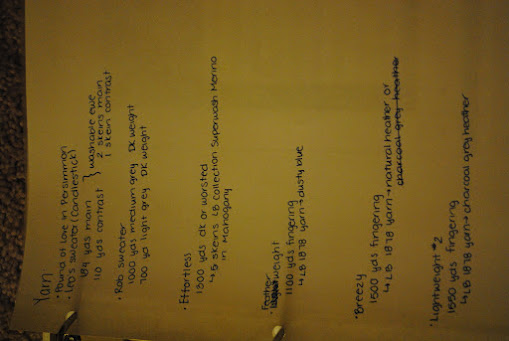 Yarn
• Pound of Love in Persimmon
• Leo's sweater (Candlestick)
189 yds main } washable ewe
110 yds contrast 2 skeins main
1 skein contrast
• Rob sweater
1000 yds medium grey DK weight
700 yd light grey DK weight
• Effortless
1300 yds dk or worsted
↳5 skeins LB collection Superwash Merino
in Mahogany
• Featherweight
1100 yds fingering
↳LB 1878 yarn → dusty blue
• Breezy
1500 yds fingering
↳LB 1878 yarn → natural heather or
charcoal grey heather
• Lightweight #2
1550 yds fingering
↳LB 1878 yarn → charcoal grey heather